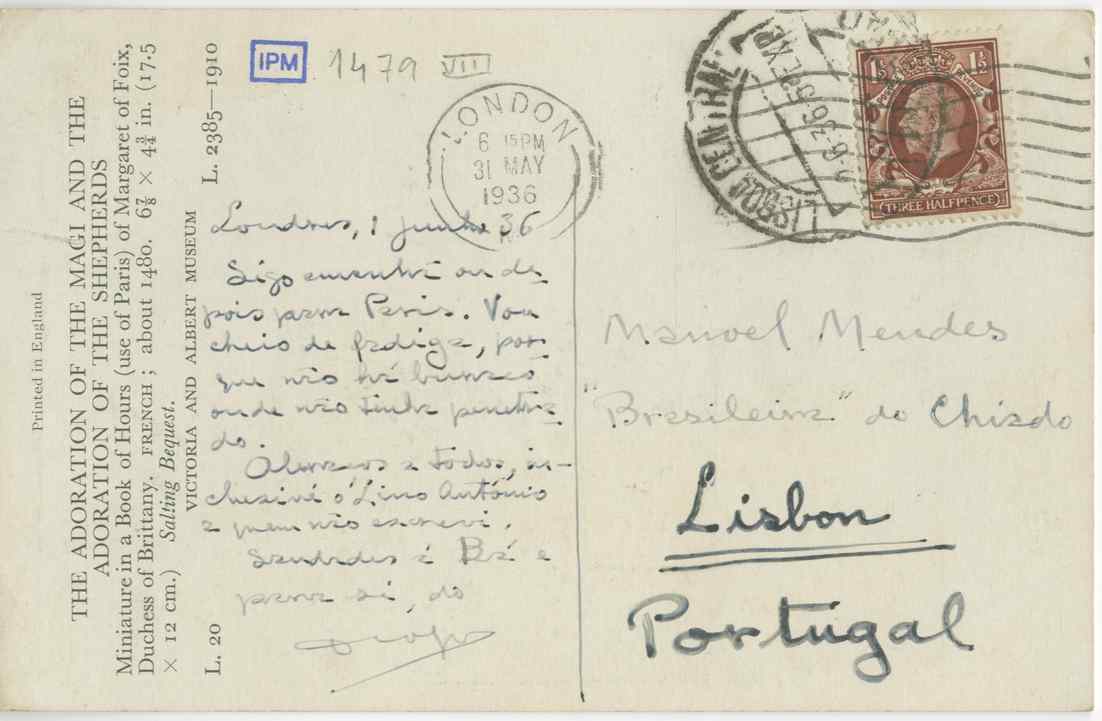 Printed in England
THE ADORATION OF THE MAGI AND THE
ADORATION OF THE SHEPHERDS
Miniature in a Book of Hours (use of Paris) of Margaret of Foix,
Duchess of Brittany. FRENCH ; about 1480. 6⅞ × 4¾ in. (17.5
× 12 cm.) Salting Bequest.
VICTORIA AND ALBERT MUSEUM
L. 20 L. 2385—1910
IPM 1479 VIII
LONDON
6 15PM
31 MAY
1936
LISBOA CENTRAL
1½ 1½
POSTAGE REVENUE
THREE HALFPENCE
Londres, 1 junho 36
Sigo amanhã ou de-
pois para Paris. Vou
cheio de fadiga, por-
que não há buraco
onde não tenha penetra-
do.
Abraços a todos, in-
clusivé ó Lino António
a quem não escrevi.
Saudades à Bá e
para si, do
Manoel Mendes
"Brasileira" do Chiado
Lisbon
Portugal